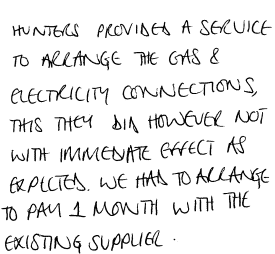 HUNTERS PROVIDED A SERVICE
TO ARRANGE THE GAS &
ELECTRICITY CONNECTIONS,
THIS THEY DID HOWEVER NOT
WITH IMMEDIATE EFFECT AS
EXPECTED. WE HAD TO ARRANGE
TO PAY 1 MONTH WITH THE
EXISTING SUPPLIER.